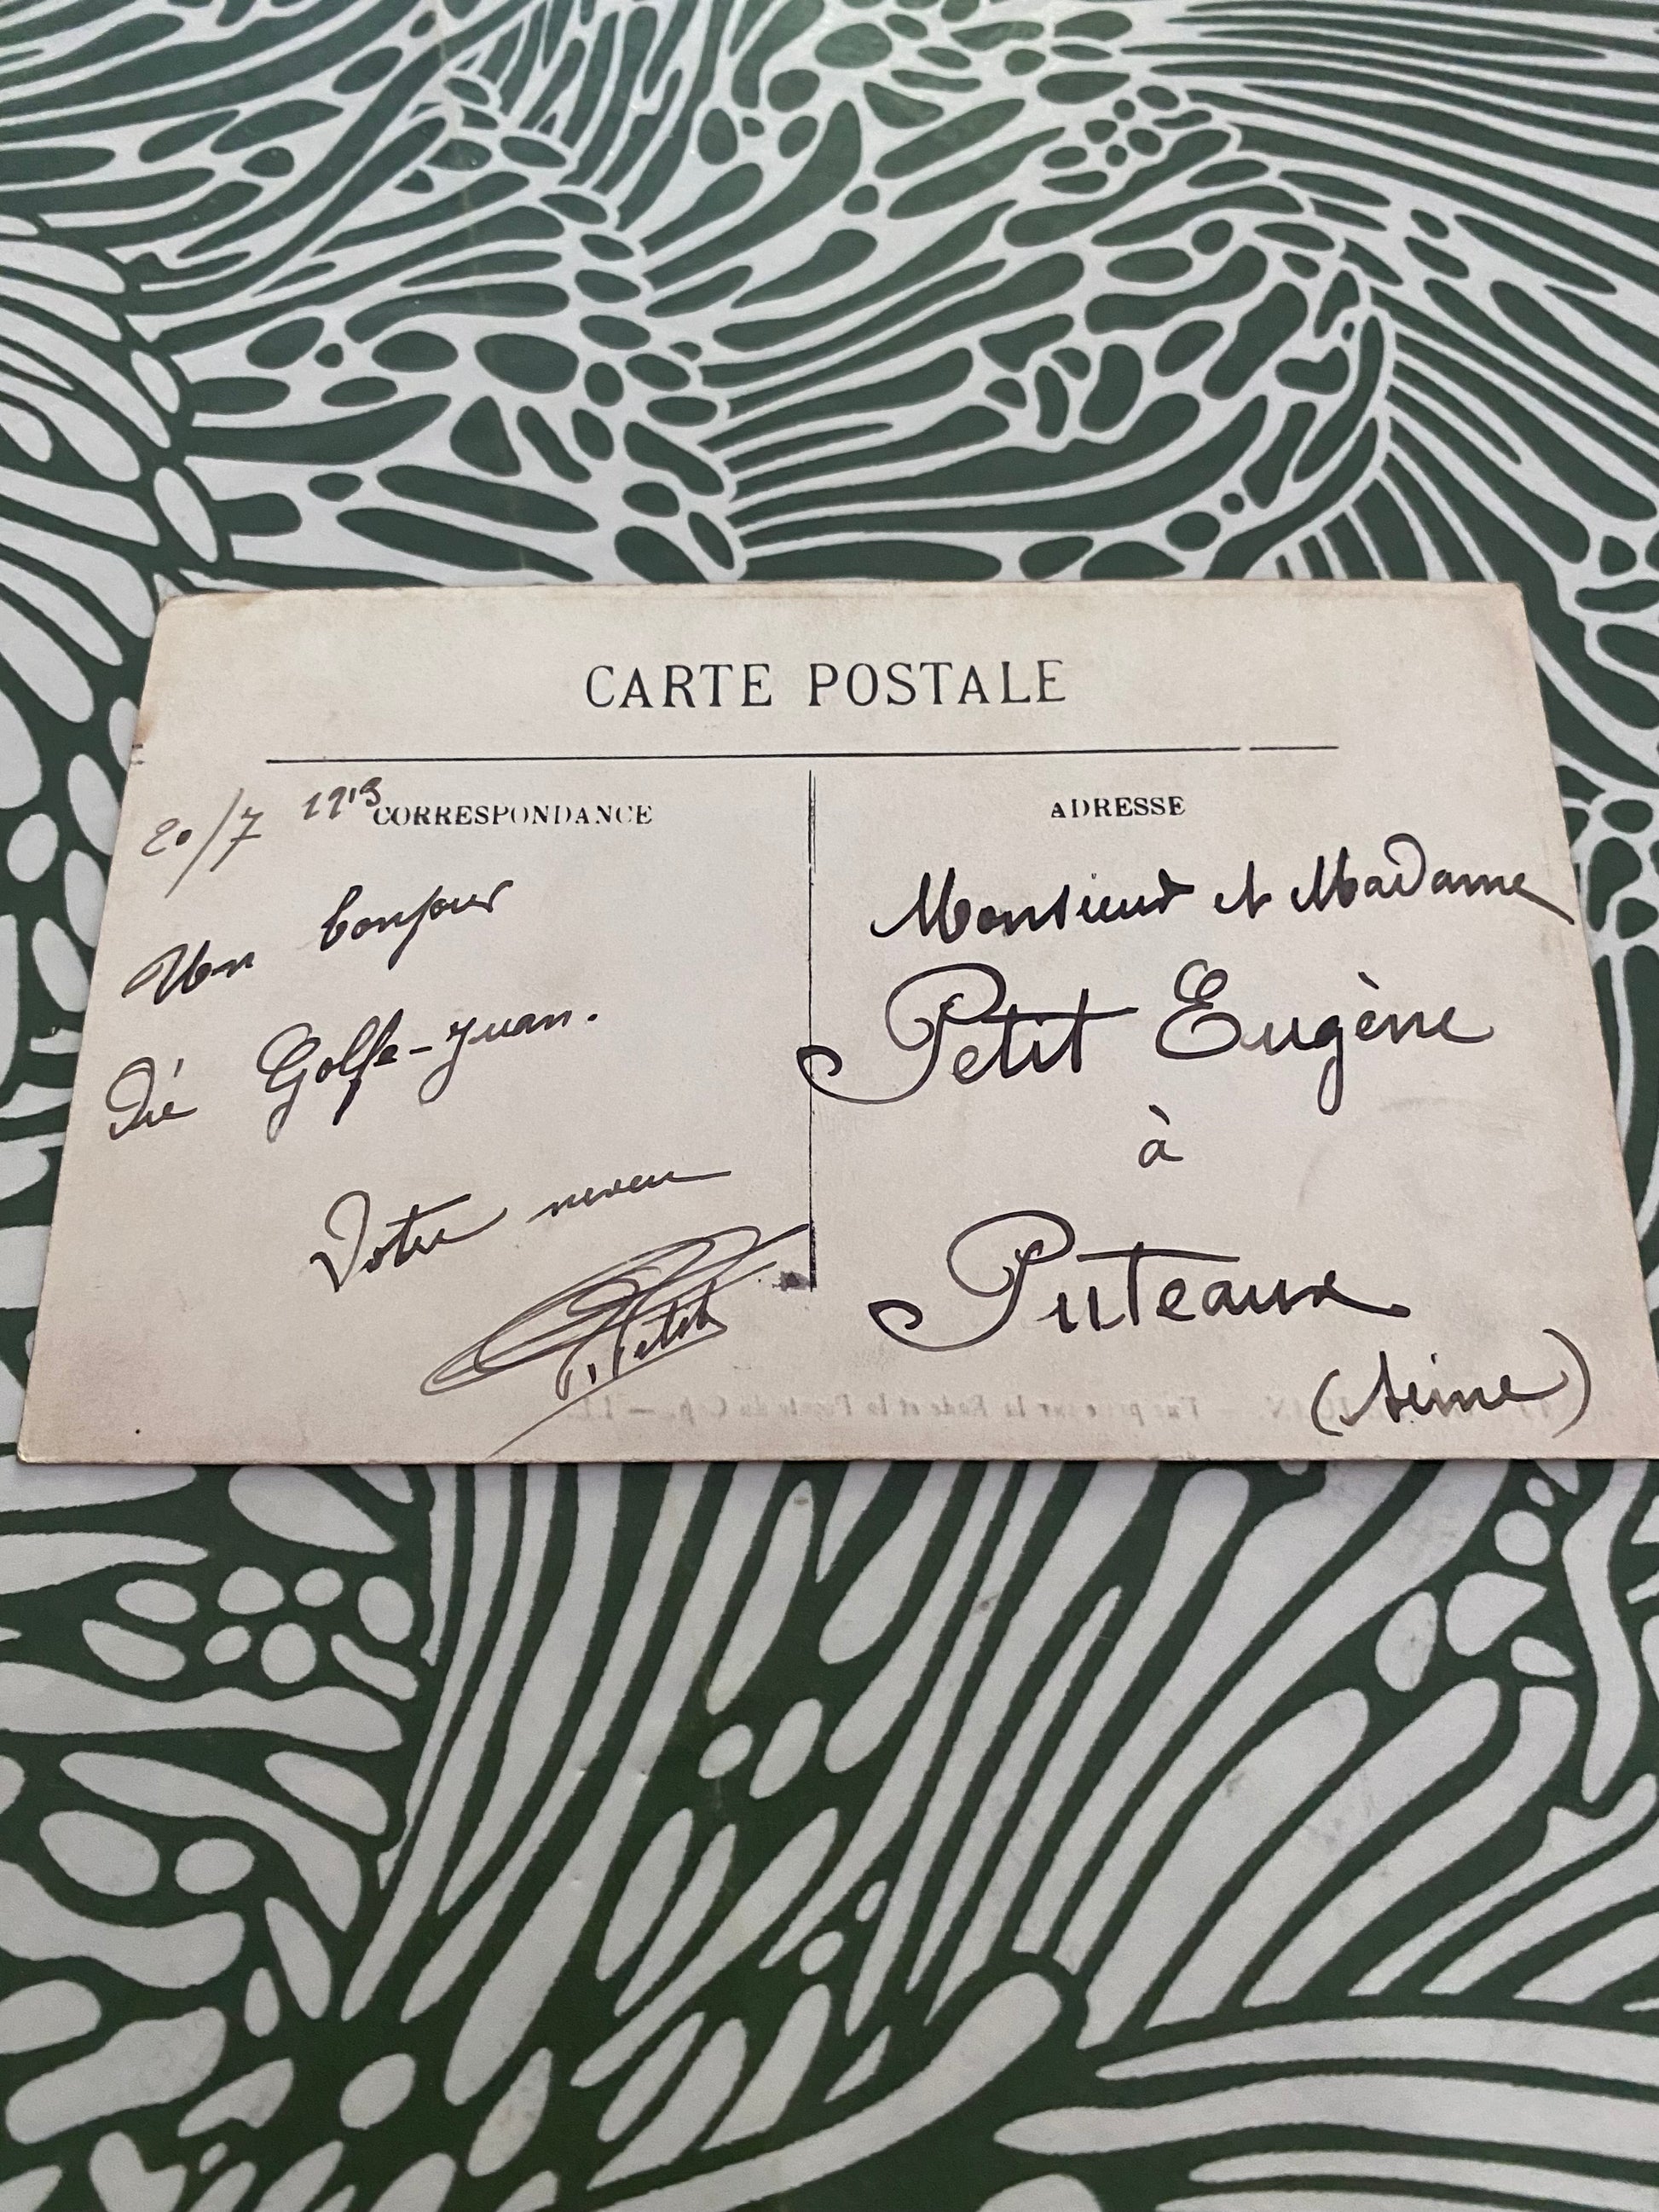 CARTE POSTALE
CORRESPONDANCE
20/7 1913
Un bonjour
Golfe-Juan.
Votre neveu
Petit
ADRESSE
Monsieur et Madame
Petit Eugène
à
Puteaux
(Seine)